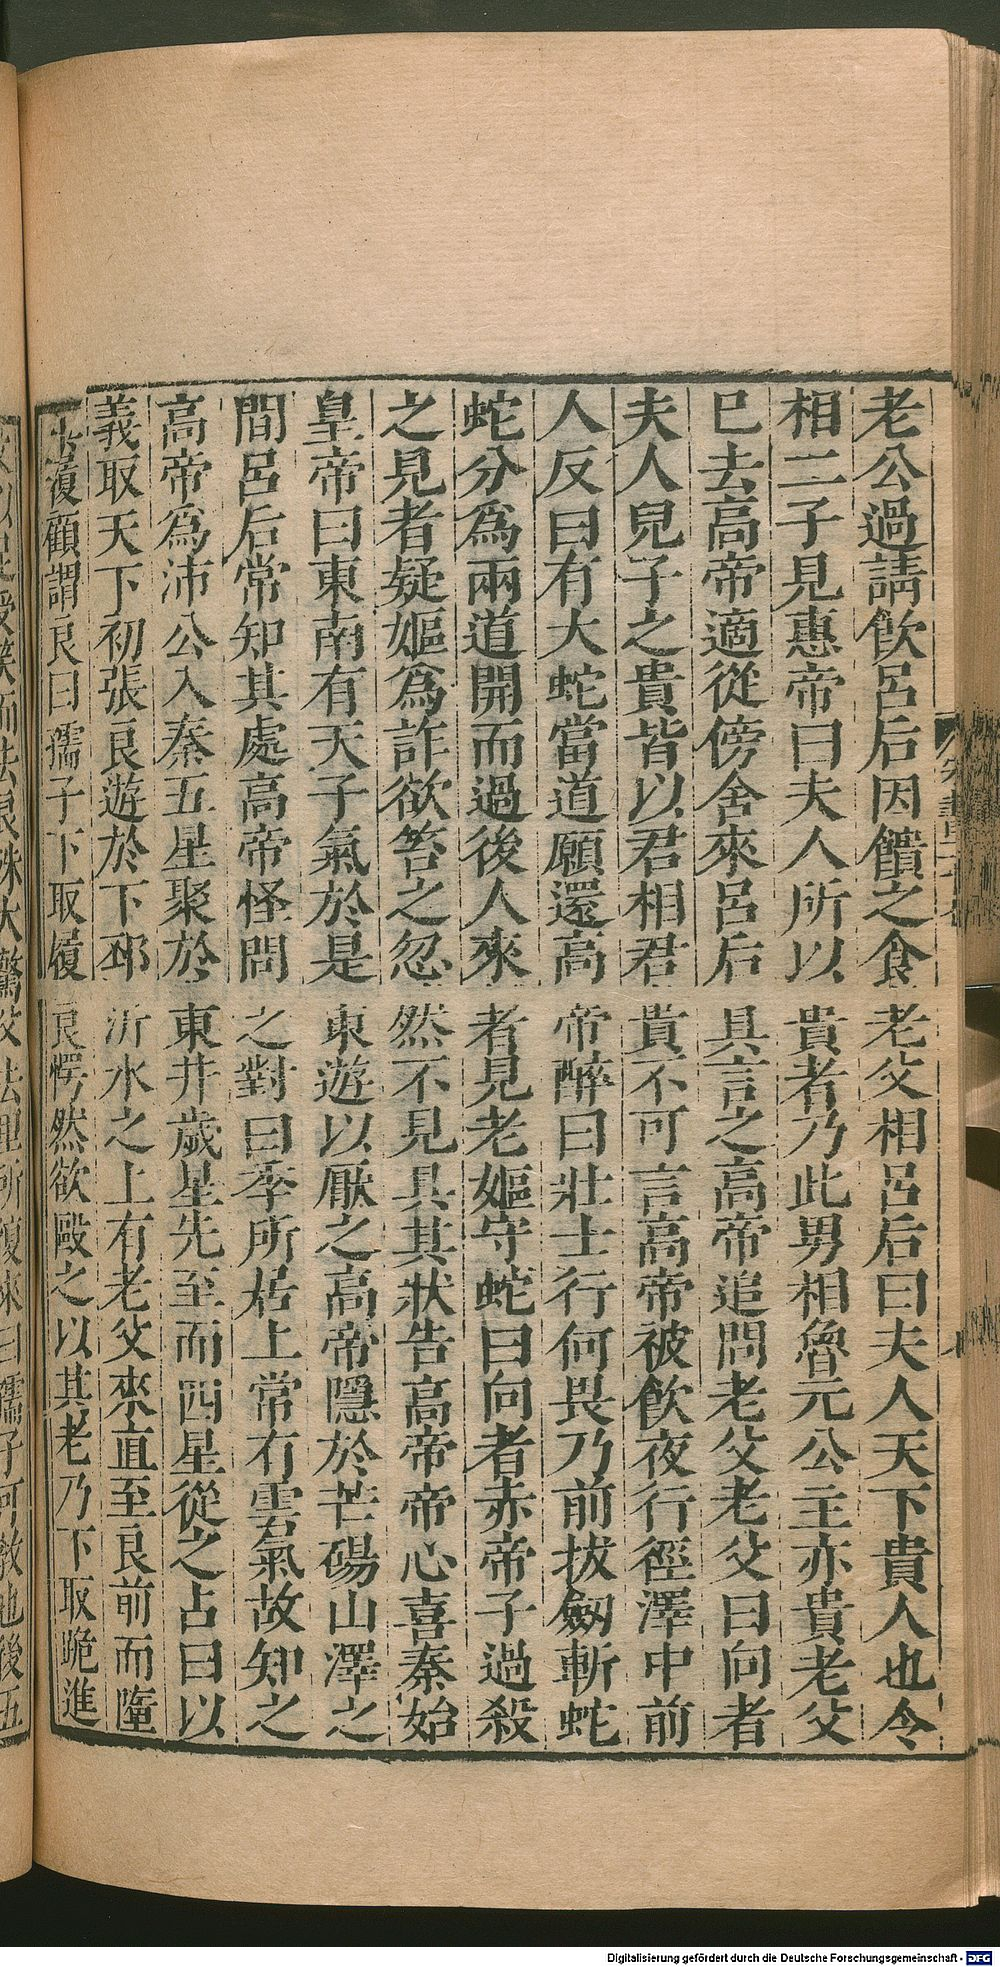 老公過請飲呂后因饋之食老父相呂后曰夫人天下貴人也令
相二子見惠帝曰夫人所以貴者乃此男相魯元公主亦貴老父
已去高帝適從傍舍來呂后具言之高帝追問老父老父曰向者
夫人兒子之貴皆以君相君貴不可言高帝被飲夜行徑澤中前
人反曰有大蛇當道願還高帝醉曰壯士行何畏乃前拔劔斬蛇
蛇分爲兩道開而過後人來者見老嫗守蛇曰向者赤帝子過殺
之見者疑嫗爲詐欲笞之忽然不見具其狀告高帝帝心喜秦始
皇帝曰東南有天子氣於是東遊以厭之高帝隱於芒碭山澤之
間呂后常知其處高帝怪問之對曰季所居上常有雲氣故知之
高帝爲沛公入秦五星聚於東井歲星先至而四星從之占曰以
義取天下初張良遊於下邳沂水之上有老父來直至良前而墮
其履顧謂良曰孺子下取履良愕然欲毆之以其老乃下取跪進
父以足受笑而去良殊大驚父去里所復來曰孺子可敎也後五
Digitalisierung gefördert durch die Deutsche Forschungsgemeinschaft - DFG